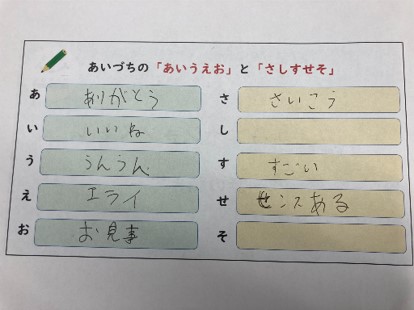 あいづちの「あいうえお」と「さしすせそ」
あ ありがとう
い いいね
う うんうん
え エライ
お お見事
さ さいこう
し
す すごい
せ センスある
そ